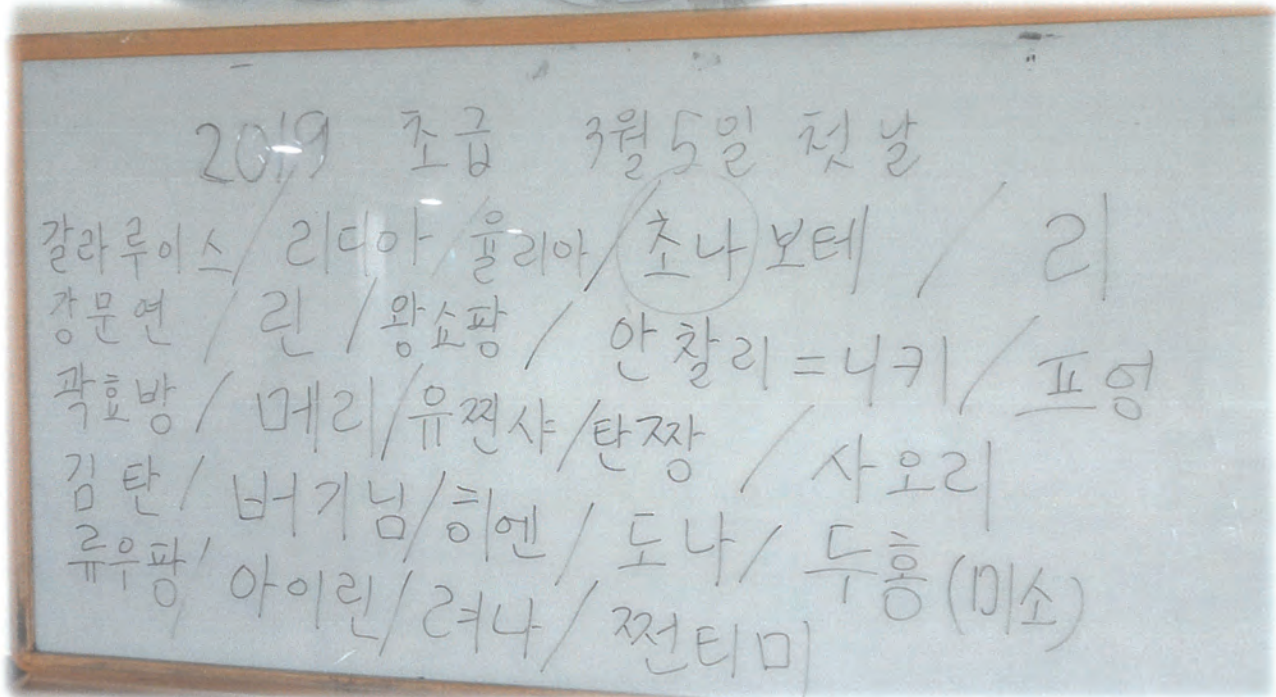 2019 초급 3월 5일 첫날
갈라루이스 / 리디아 / 율리아 / 초나보테 / 리
장문연 / 린 / 왕쇼팡 / 안찰리 = 니키 / 프엉
곽효방 / 메리 / 유쩐샤 / 탄짱 / 사오리
김탄 / 버기님 / 히엔 / 도나 / 두홍 (미소)
류우팡 / 아이린 / 려나 / 쩐티미